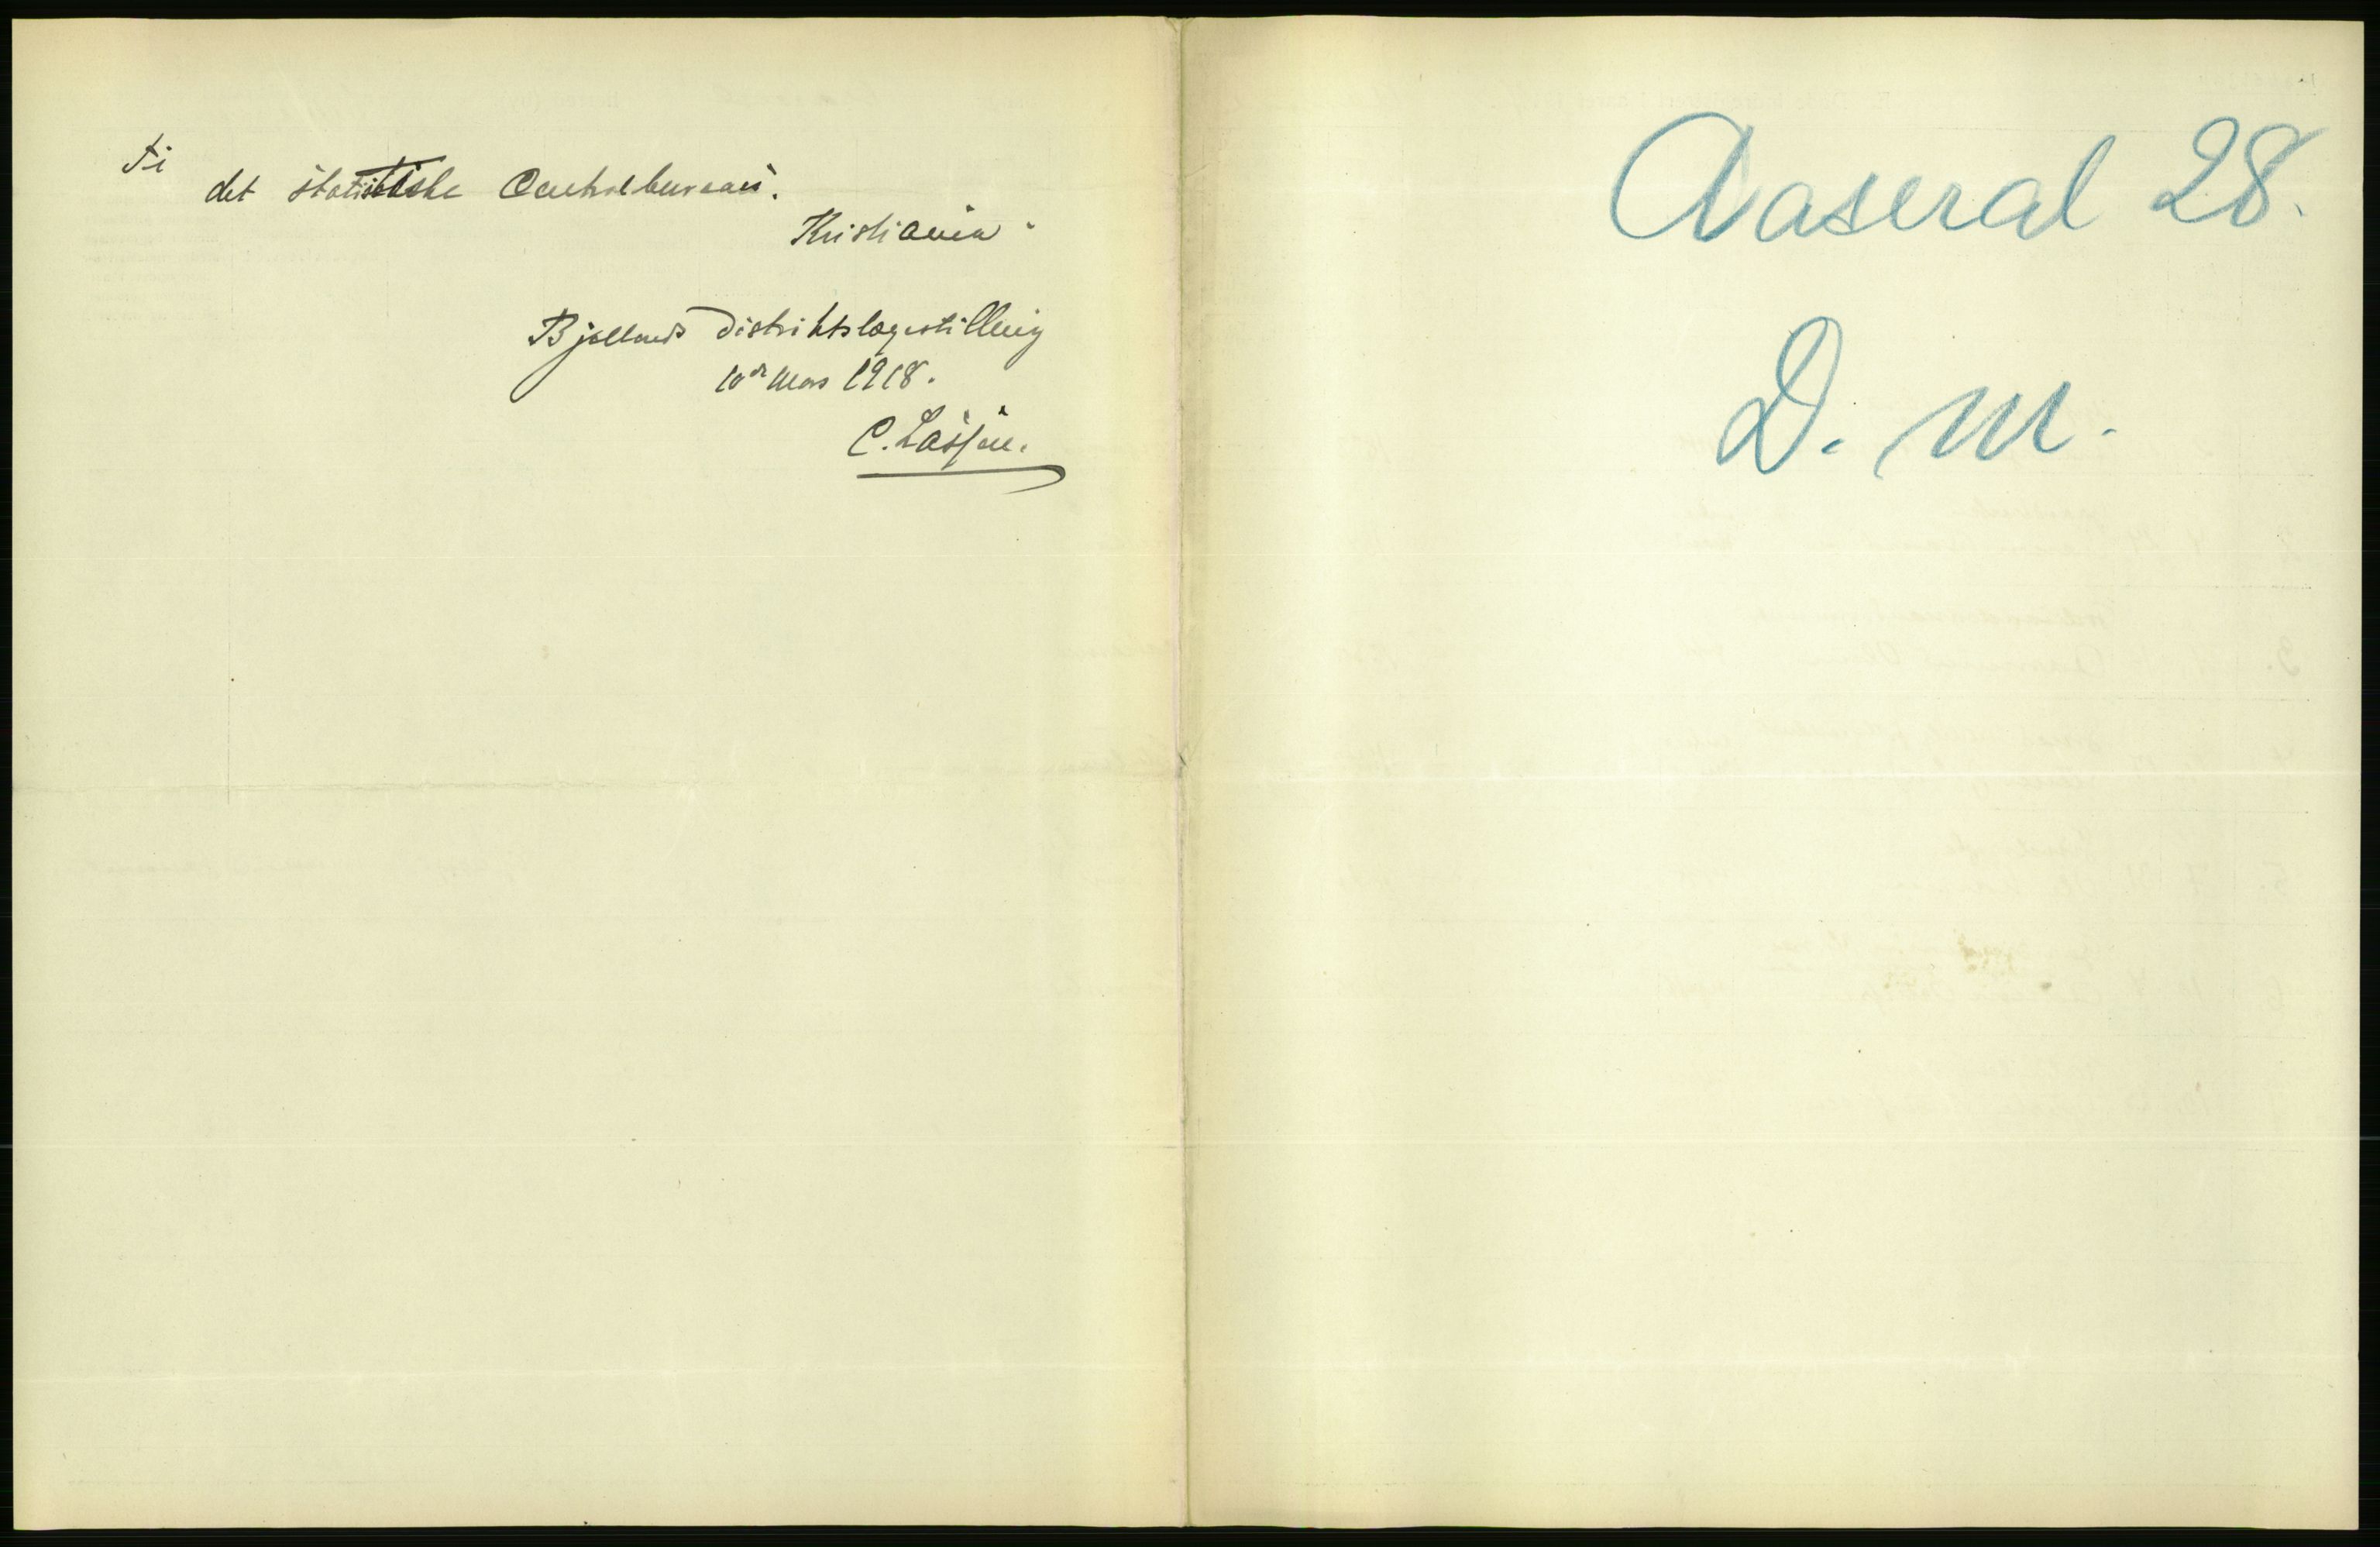 Ti
det statistiske Centralbureau.
Kristiania.
Bjellands Distriktslægestilling
10de Mars 1918.
C. Lassen.
Aaseral 28.
D. M.